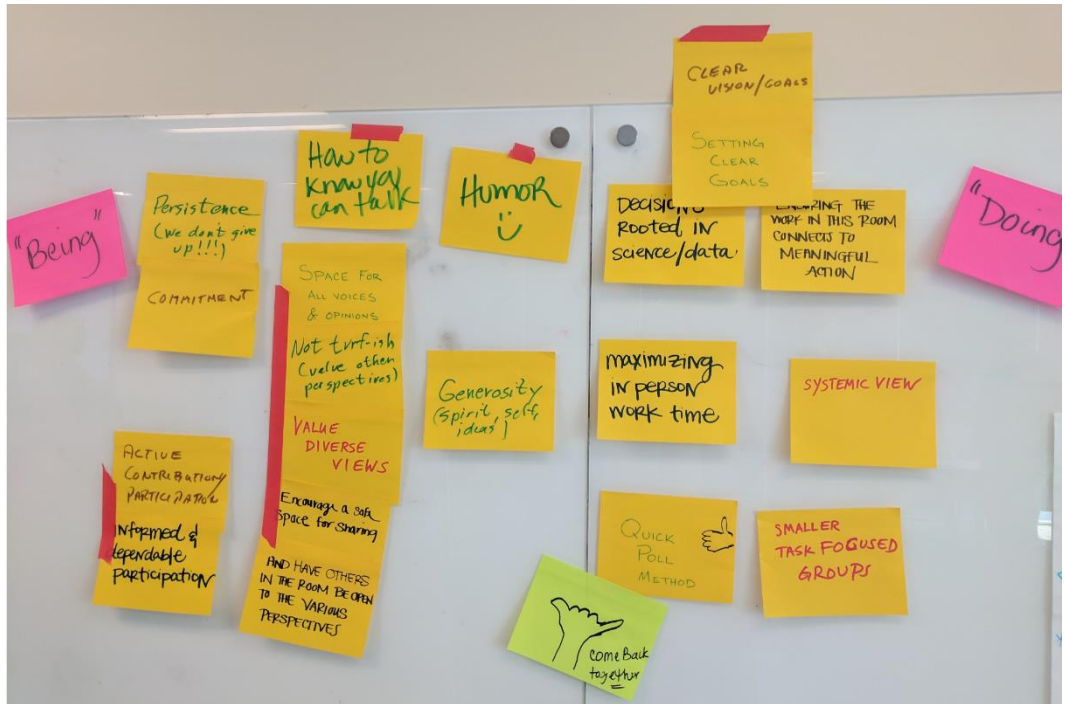 "Being"
Persistence
(we don't give
up!!!)
COMMITMENT
ACTIVE
CONTRIBUTION/
PARTICIPATION
informed &
dependable
participation
How to
know you
can talk
SPACE FOR
ALL VOICES
& OPINIONS
Not turf-ish
(value other
perspectives)
VALUE
DIVERSE
VIEWS
Encourage a safe
space for sharing
AND HAVE OTHERS
IN THE ROOM BE OPEN
TO THE VARIOUS
PERSPECTIVES
HUMOR
Generosity
(spirit, self,
ideas)
come Back
together
CLEAR
VISION/GOALS
SETTING
CLEAR
GOALS
DECISIONS
Rooted in
science/data
ENSURING THE
WORK IN THIS ROOM
CONNECTS TO
MEANINGFUL
ACTION
maximizing
in person
work time
SYSTEMIC VIEW
QUICK
POLL
METHOD
SMALLER
TASK FOCUSED
GROUPS
"Doing